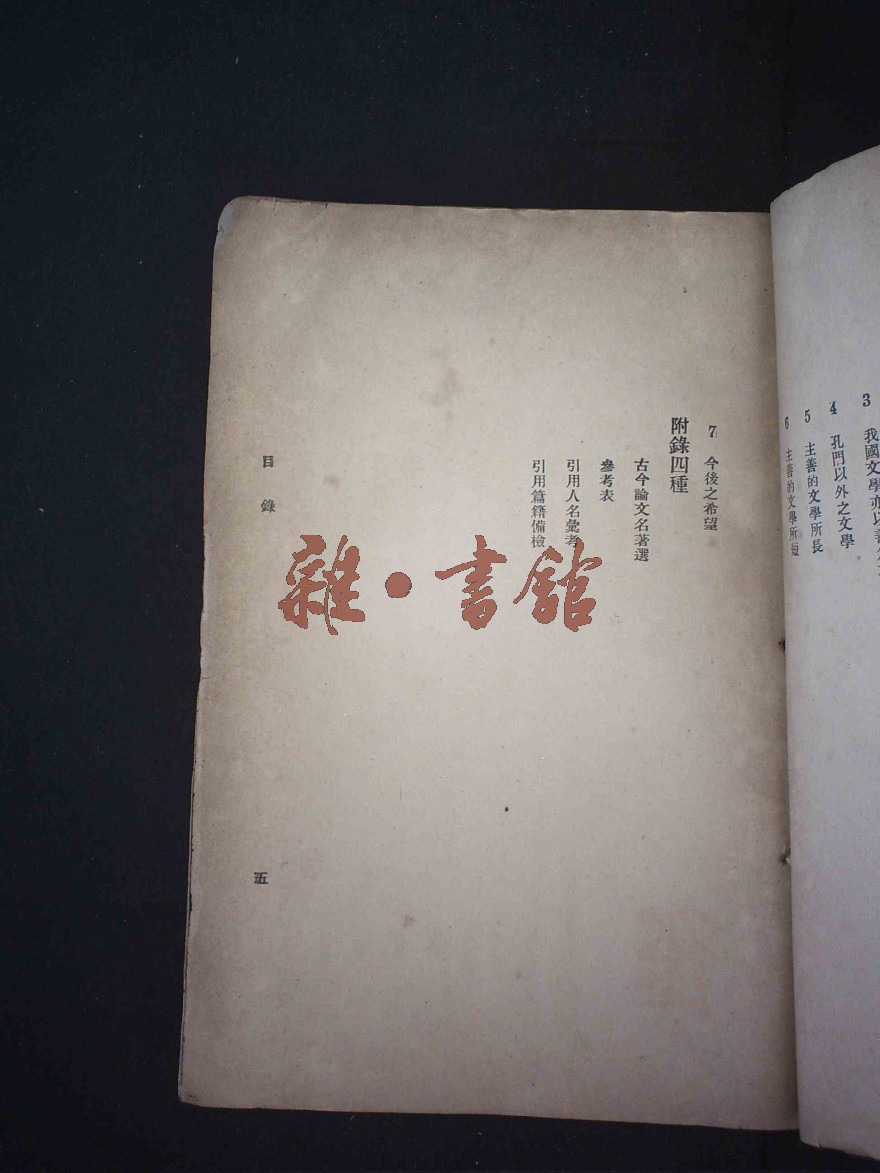 3 我國文學亦以善
4 孔門以外之文學
5 主善的文學所長
6 主善的文學所短
7 今後之希望
附錄四種
古今論文名著選
參考表
引用人名彙考
引用篇籍備檢
目錄
五
雜·書館